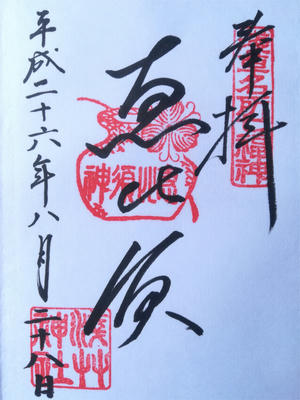 奉拝
恵比須
恵比須神
平成二十六年八月二十八日
淺草神社